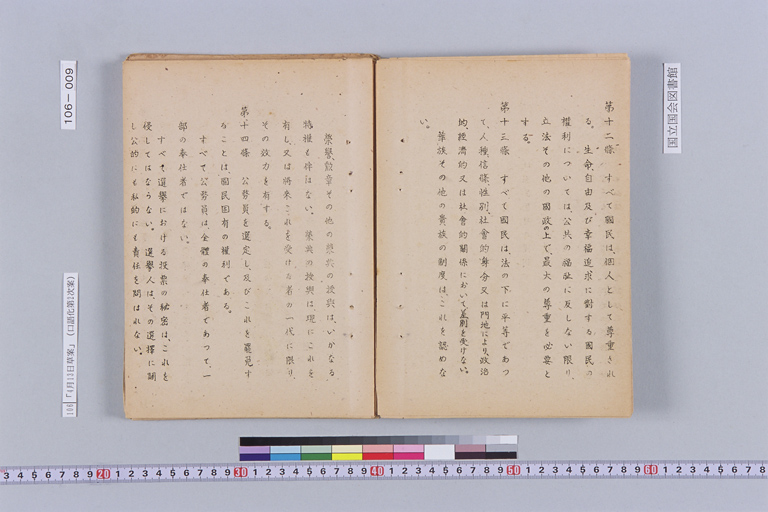 第十二條　すべて國民は、個人として尊重され
る。　生命、自由及び幸福追求に對する國民の
權利については、公共の福祉に反しない限り、
立法その他の國政の上で、最大の尊重を必要と
する。
第十三條　すべて國民は、法の下に平等であつ
て、人種、信條、性別、社會的身分又は門地により、政治
的、經濟的又は社會的關係において差別を受けない。
華族その他の貴族の制度は、これを認めな
い。
榮譽、勲章その他の榮典の授與は、いかなる
特權も伴はない。　榮典の授與は、現にこれを
有し、又は將來これを受ける者の一代に限り、
その效力を有する。
第十四條　公務員を選定し、及びこれを罷免す
ることは、國民固有の權利である。
すべて公務員は、全體の奉仕者であつて、一
部の奉仕者ではない。
すべて選擧における投票の祕密は、これを
侵してはならない。　選擧人は、その選擇に關
し、公的にも私的にも責任を問はれない。
国立国会図書館
106-009
106「4月13日草案」（口語化第2次案）
3 4 5 6 7 8 9 20 1 2 3 4 5 6 7 8 9 30 1 2 3 4 5 6 7 8 9 40 1 2 3 4 5 6 7 8 9 50 1 2 3 4 5 6 7 8 9 60 1 2 3 4 5 6 7 8